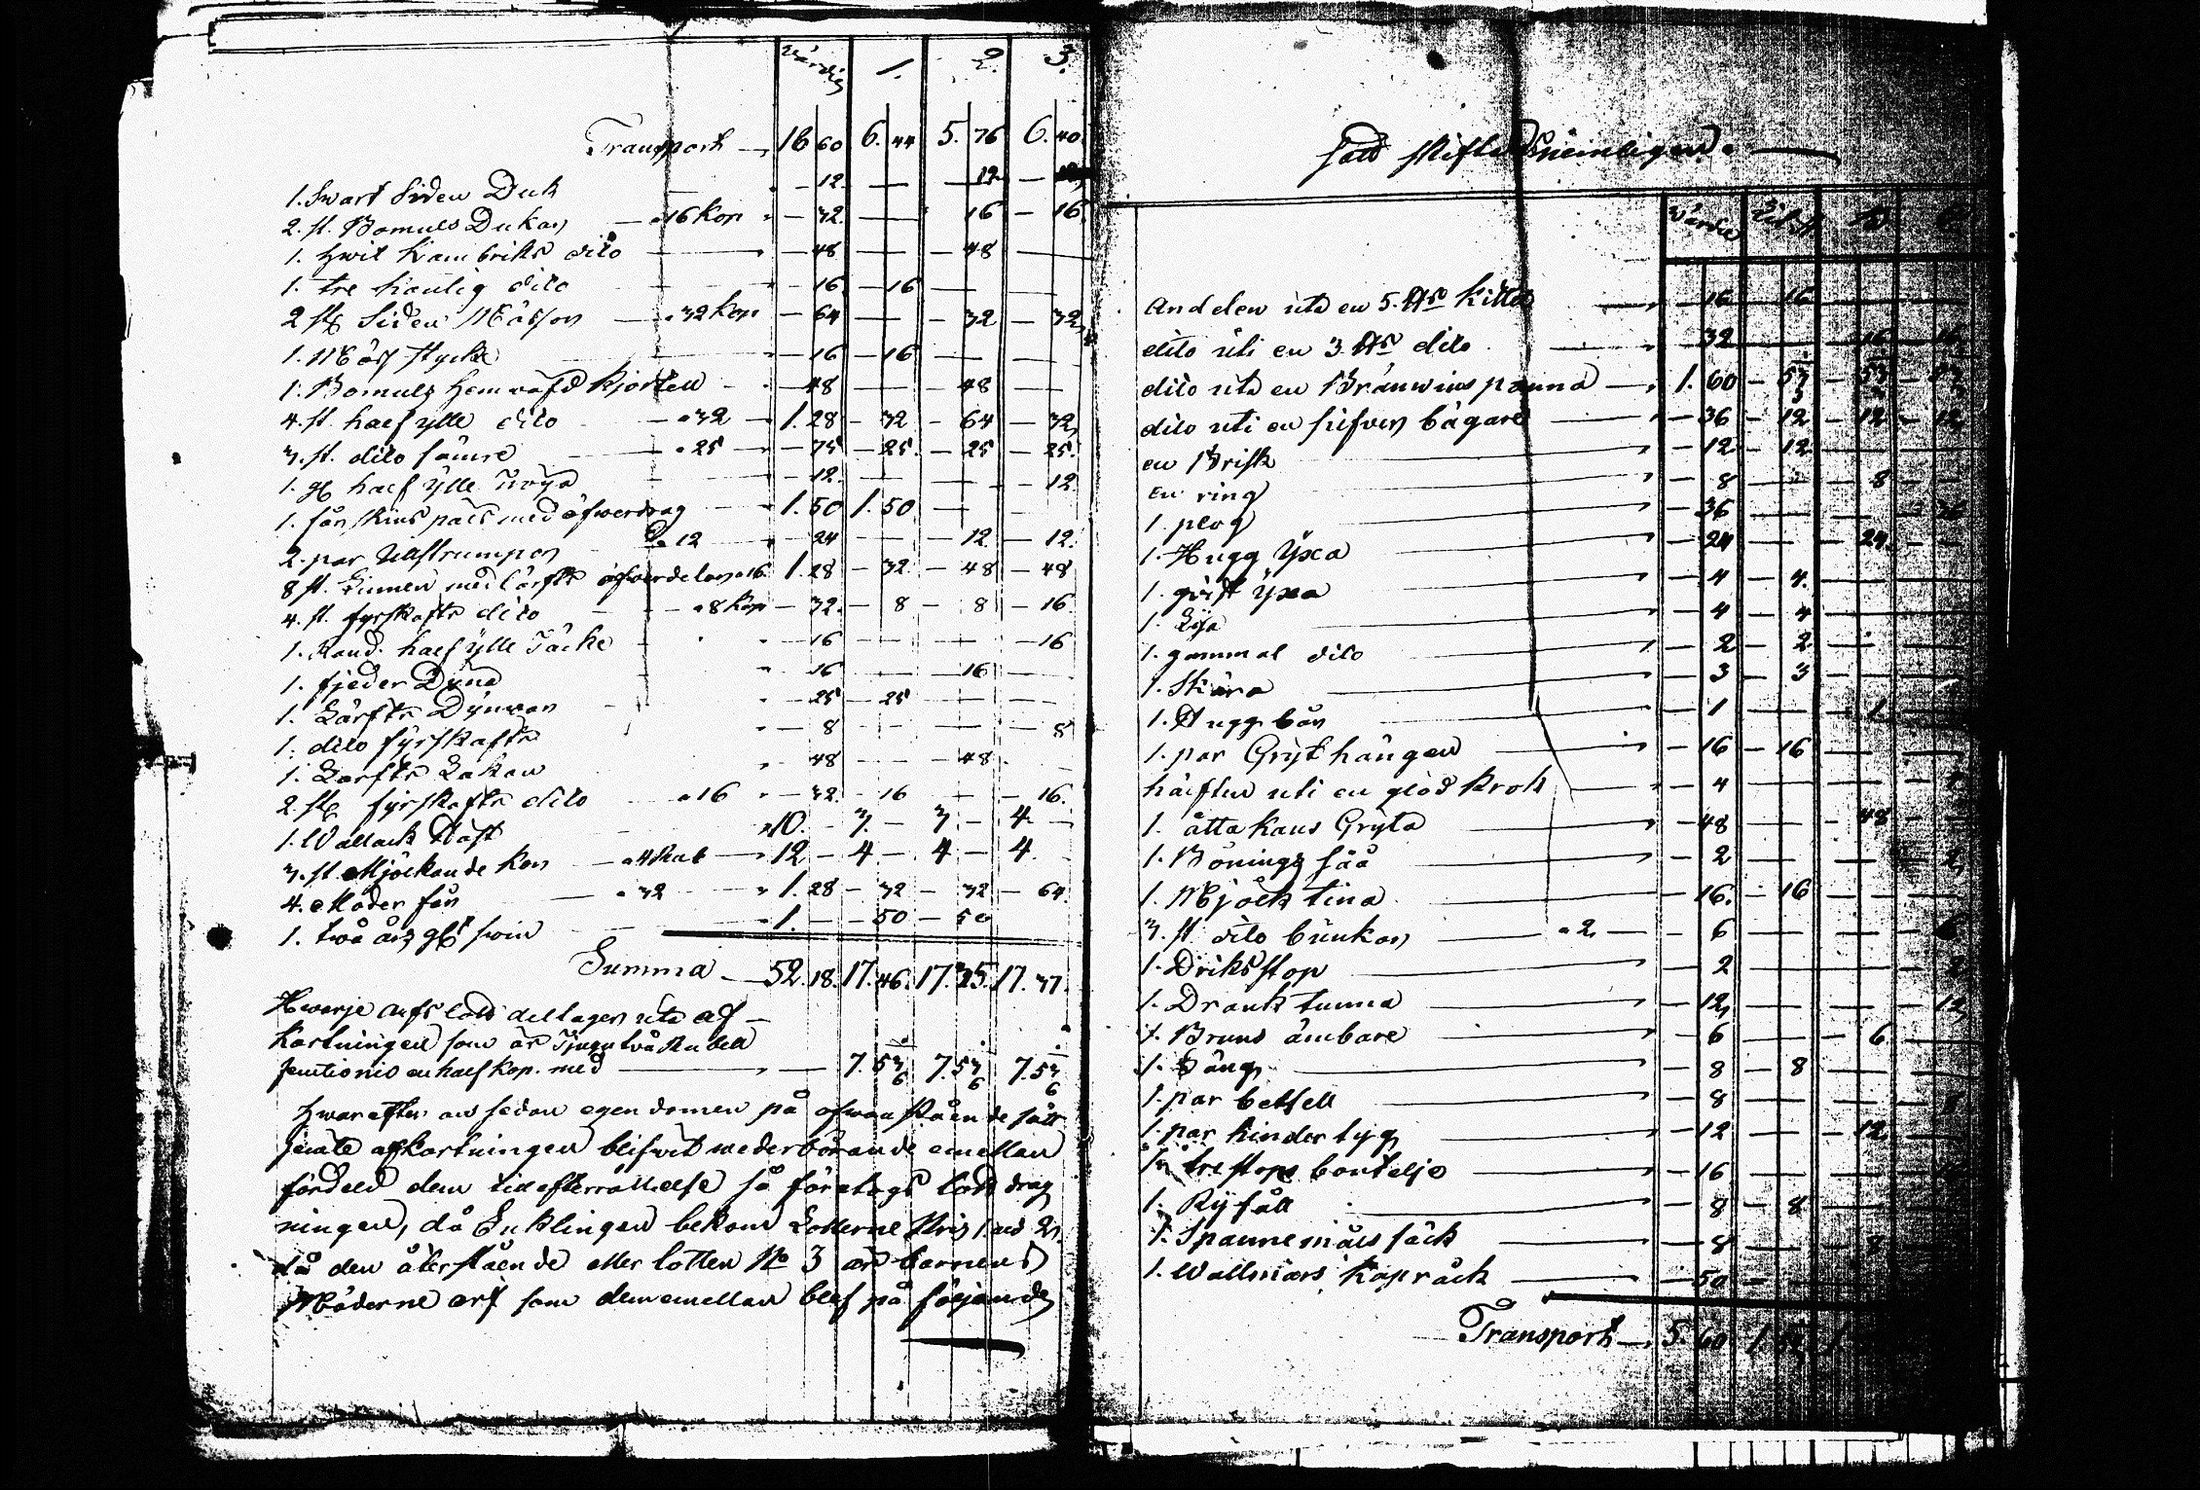 Värdie 1. 2. 3.
Transport — 16 60 6. 44 5. 76 6. 40.
1. Swart Siden Duk — 12. — 12 — 12
2. st. Bomuls Dukar — a 16 Kop — 32. — 16 — 16.
1. hwit Kambriks dito — 48 — 48 —
1. tre kantig dito — 16 — 16 — —
2 st Siden Mössor — a 32 kop — 64 — — 32 — 32
1. Möss stycke — 16 — 16 — —
1. Bomuls hemväfd Kjortell — 48 — 48 —
4. st. half ylle dito — a 32 — 1. 28 — 32 — 64 — 32
3. st. dito sämre — a 25 — 75 — 25. — 25 — 25.
1. half ylle tröya — 12. — — 12
1. får skins päls med öfwerdrag — 1. 50 1. 50 — —
2. par Ullstrumpor a 12 — 24 — 12. — 12.
8 st. Linnen med lärfts öfwerdelar a 16 1. 28 — 32. — 48 — 48
4. st. fyrskafts dito — a 8 kop — 32. — 8 — 8 — 16
1. Rand. half ylle Täcke — 16 — — 16
1. fjeder Dyna — 16 — 16 —
1. Lärfts Dynwar — 25 — 25 — —
1. dito fyrskafts — 8 — — 8
1. Larfts Lakan — 48 — 48. —
2. st fyrskafts dito — a 16 — 32. — 16 — — 16.
1. Wallack Häst — 10. — 3. — 3 — 4 —
3. st. Mjölkande Kor — a 4 Rub — 12 — 4 — 4 — 4.
4. Moder får — a 32 — 1. 28 — 32 — 32 — 64
1. två års swin — 1. — 50 — 50
Summa — 52. 18. 17. 46. 17. 35. 17. 37.
Hwarje arfs lott deltager uti af—
Kortningen som är Tjugutvå Rubell
en half kop. med — 7. 53 7. 53 7. 53
6 6 6
Hwarefter och sedan egendomen på ofwanstående sätt
jemte afkortningen blifwit wederbörande emellan
fördeld dem till efterrättelse så företogs lott drag
ningen, då Enklingen bekom Lotterne Nris 1. och 2,
då den återstående eller lotten No 3 är barnens
Möderne arf som dem emellan blef på följande
sätt skiftad nemligen. —
Värde
Andelen uti en 5. kittel — 16 — 16 — —
dito uti en 3 dito — 32 — 16 — 16
dito uti en Bränwins panna — 1. 60 — 53 — 53 — 53
dito uti en silfwer bägare — 36 — 12 — 12 — 12
en Brisk — 12 — 12 —
en ring — 8 — 8 —
1. plog — 36 — — 36
1. Hugg Yxa — 24 — 24. —
1. qvist yxa — 4 — 4.
1. Lija — 4 — 4
1. gammal dito — 2 — 2 —
1. Skära — 3 — 3
1. Hugg bår — 1 — 1
1. par Gryt hängen — 16 — 16 —
hälften uti en glöd krok — 4 — —
1. åtta kans Gryta — 48 — 48
1. Bönings så — 2 — — 2,
1. Mjölk tina — 16. — 16 —
3. st. dito bunkar — a 2. — 6 — — 6
1. Driksstop — 2 — — 2
1. Drank tunna — 12, — — 12,
1. Bruns ämbare — 6 — 6
1. Säng — 8 — 8 —
1. par betsell — 8 — — 8
1. par hinder tyg — 12 — 12
1. tre stops bouteljo — 16 —
1. Ryfäll — 8 — 8
1. Spannemåls säck — 8 — — 8
1. Wallmars Kapråck — 50 —
Transport — 5. 60